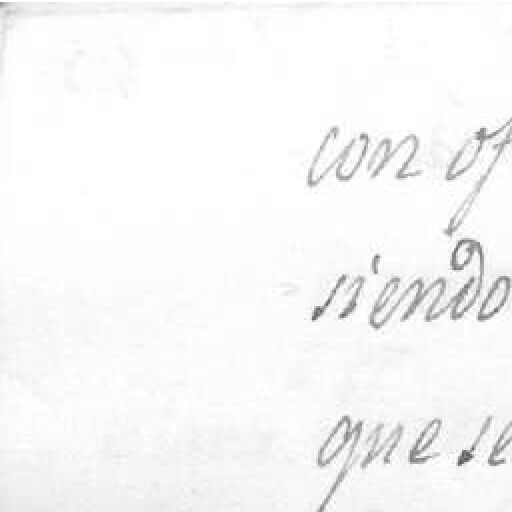 con of
siendo
que se